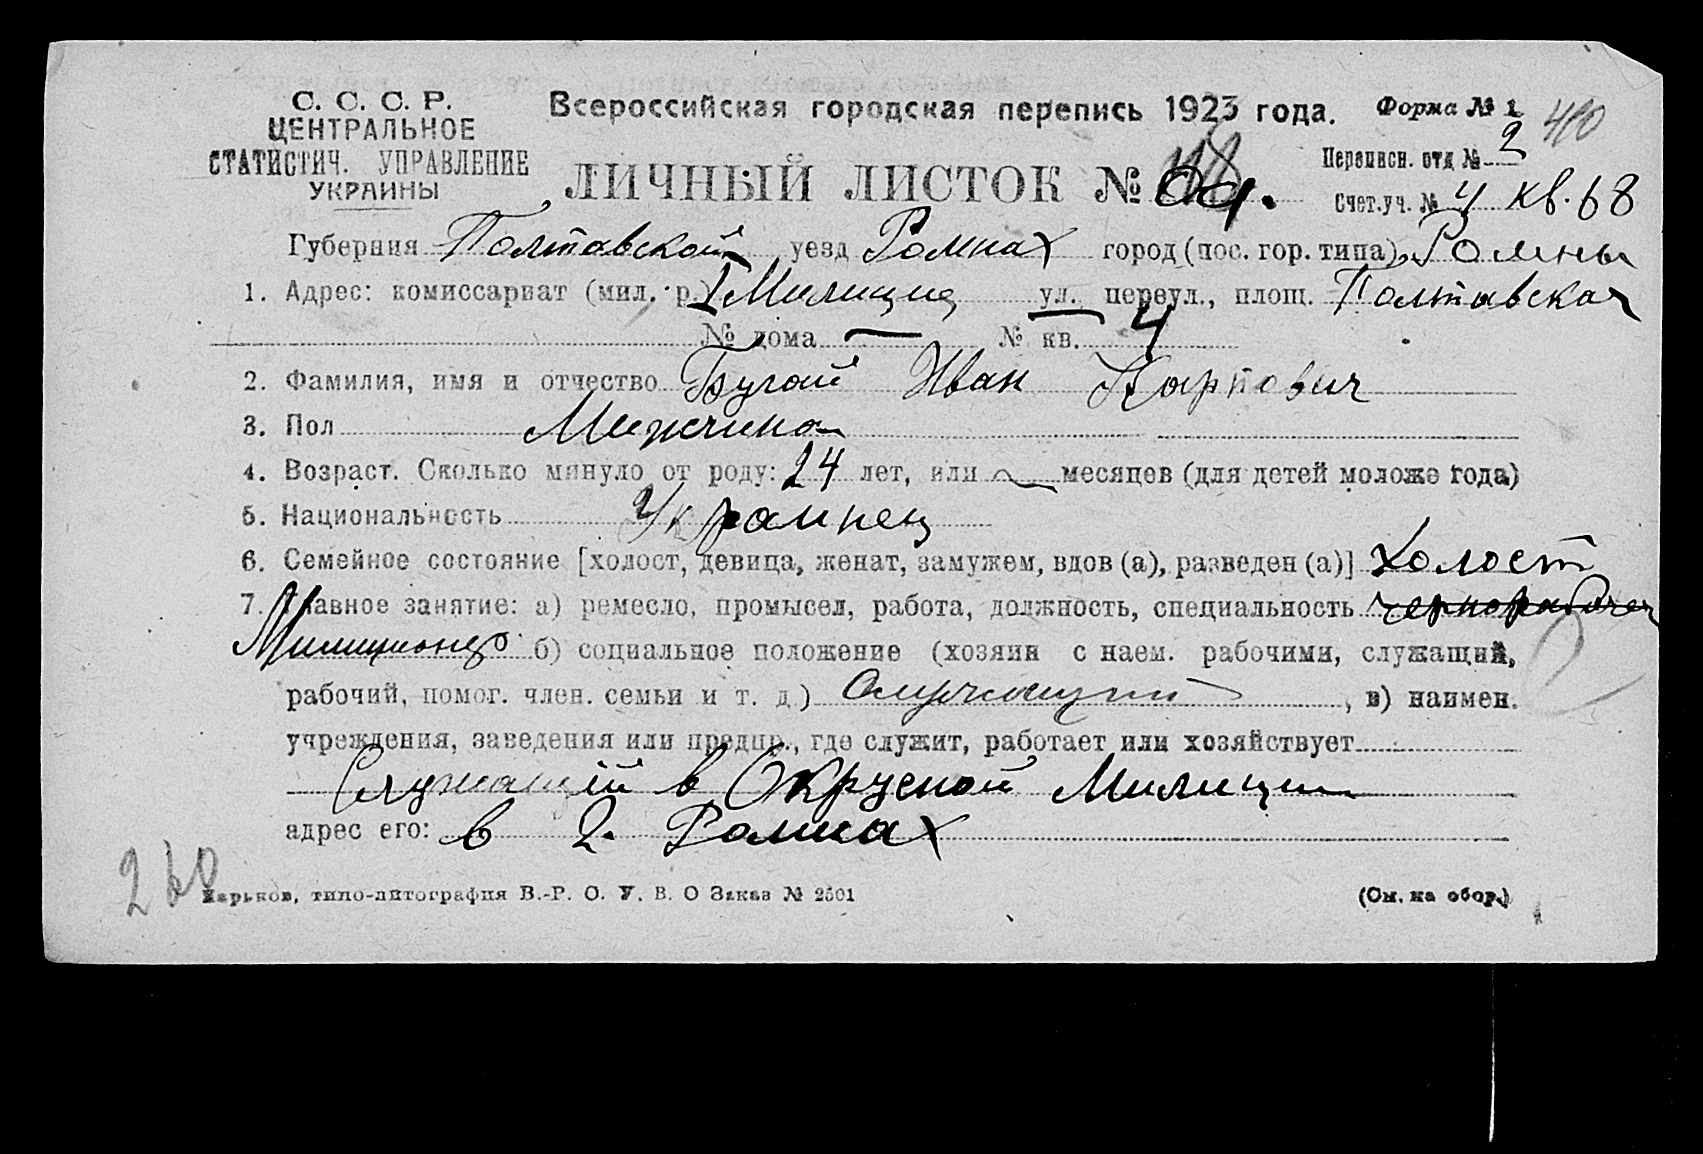 С. С. С. Р.
ЦЕНТРАЛЬНОЕ
СТАТИСТИЧ. УПРАВЛЕНИЕ
УКРАИНЫ
Всероссийская городская перепись 1923 года.
Форма № 1
400
ЛИЧНЫЙ ЛИСТОК №
Переписн. отд № 2
Счет.уч. № 4 кв. 68
Губерния Полтавской уезд Ромнах город (пос. гор. типа) Ромны
1. Адрес: комиссариат (мил. р.) 1 Милиция ул. переул., площ. Полтавская
№ дома — № кв. 4
2. Фамилия, имя и отчество Бугай Иван Карпович
3. Пол Мужчина
4. Возраст. Сколько минуло от роду: 24 лет, или месяцев (для детей моложе года)
5. Национальность Украинец
6. Семейное состояние [холост, девица, женат, замужем, вдов (а), разведен (а)] Холост
7. Главное занятие: а) ремесло, промысел, работа, должность, специальность чернорабочей
Милиционер б) социальное положение (хозяин с наем. рабочими, служащий,
рабочий, помог. член. семьи и т. д.) Служащий, в) наимен.
учреждения, заведения или предпр., где служит, работает или хозяйствует
Служащий в Окружной Милиции
адрес его: в г. Ромнах
260
Харьков, типо-литография В.-Р. О. У. В. О Заказ № 2501
(См. на обор.)